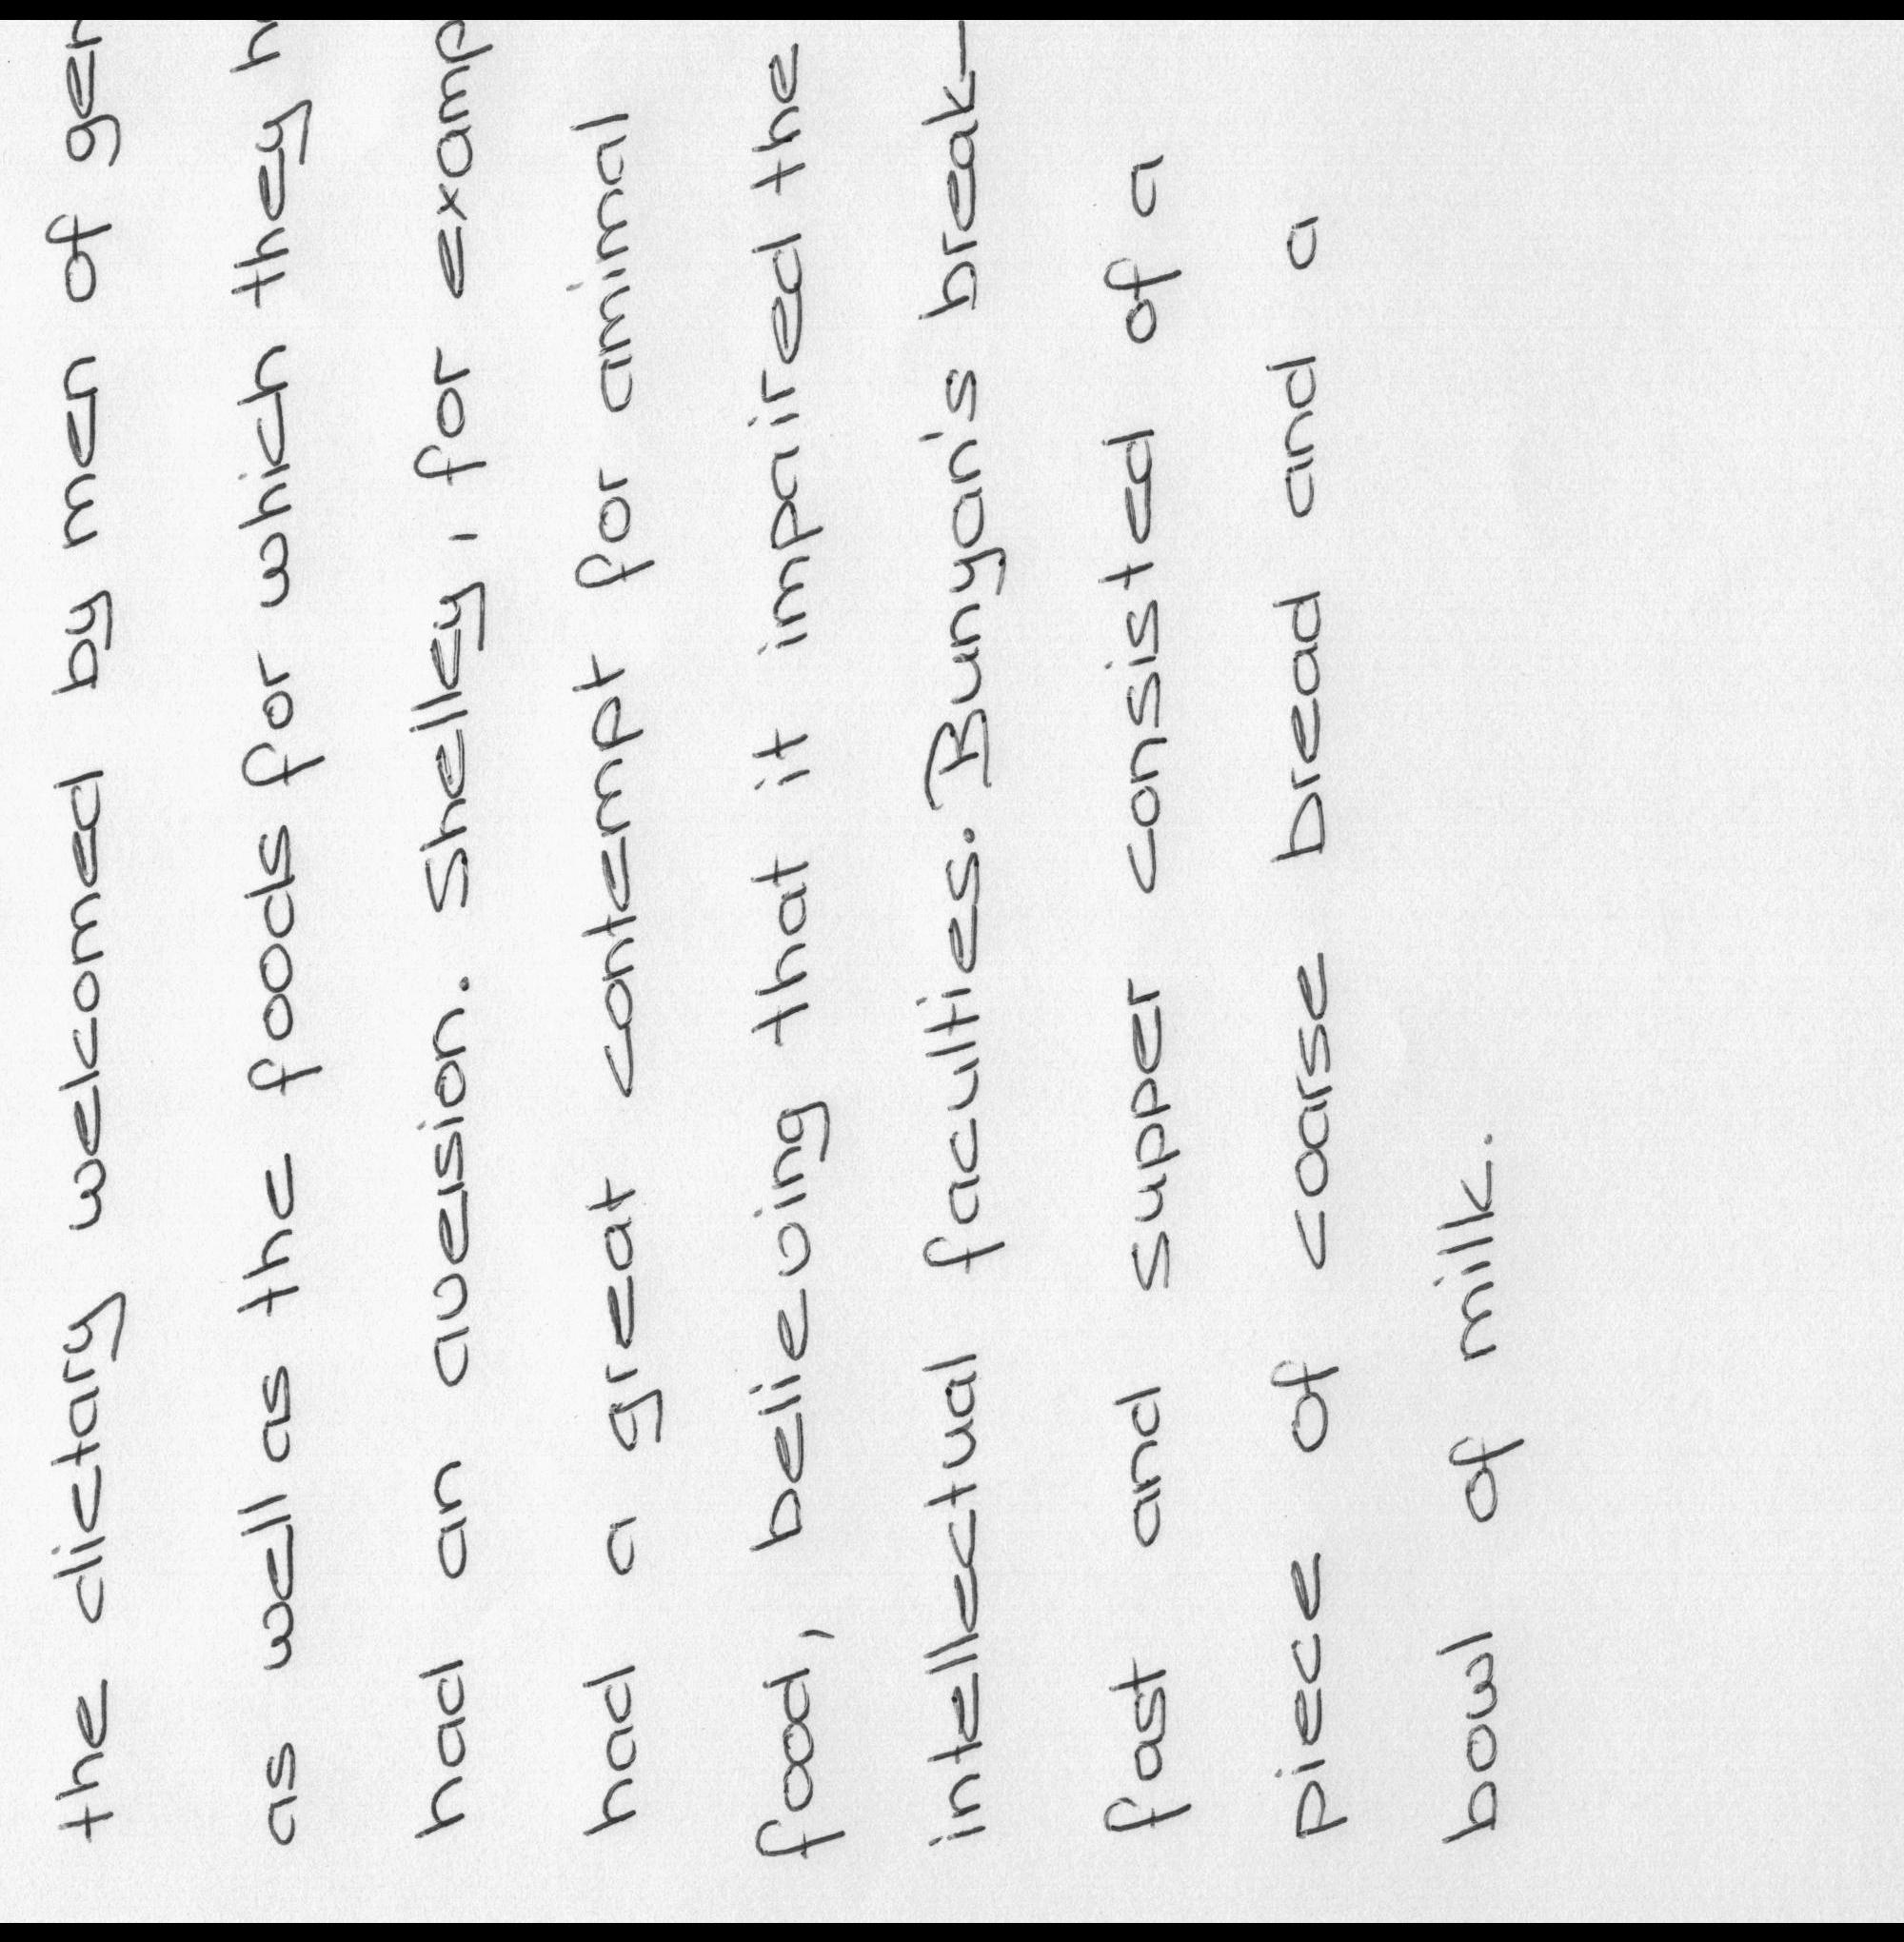 the dietary welcomed by men of gen
as well as the foods for which they h
had an aversion. Shelley, for examp
had a great contempt for animal
food, believing that it impaired the
intellectual faculties. Bunyan's break-
fast and supper consisted of a
piece of coarse bread and a
bowl of milk.